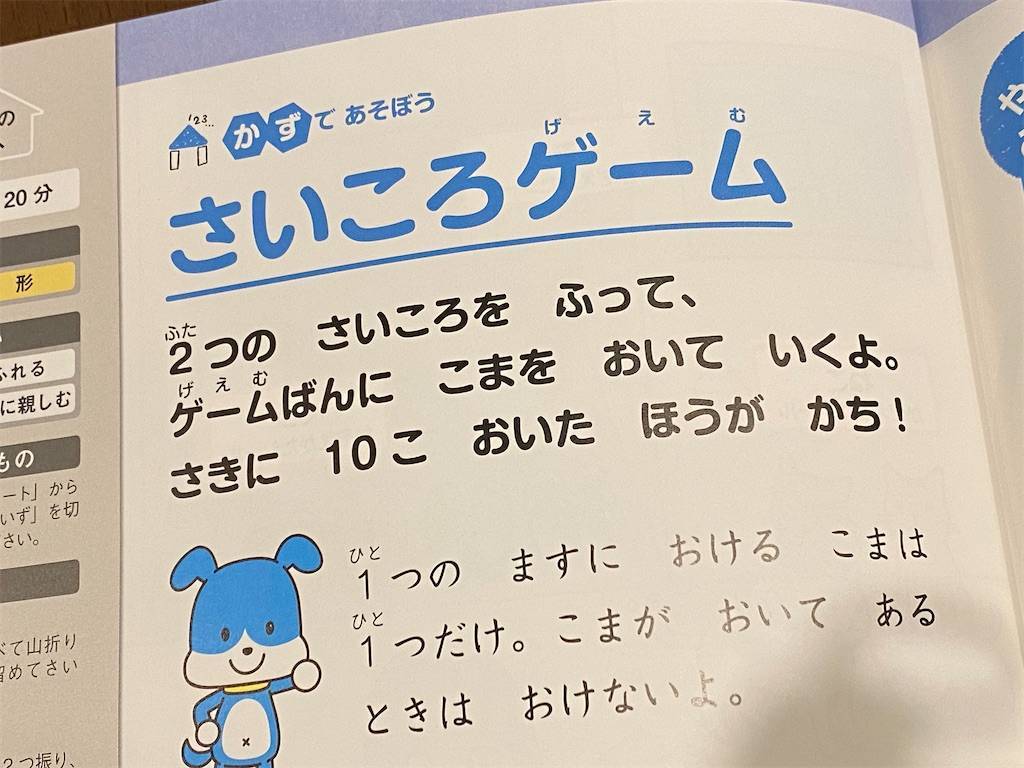 の
20分
形
ふれる
に親しむ
もの
ート」から
いず」を切
さい。
べて山折り
留めてさい
2つ振り、
123...
かずであそぼう
げえむ
さいころゲーム
ふた
2つの さいころを ふって、
げえむ
ゲームばんに こまを おいて いくよ。
さきに 10こ おいた ほうが かち!
ひと
1つの ますに おける こまは
ひと
1つだけ。こまが おいて ある
ときは おけないよ。
や